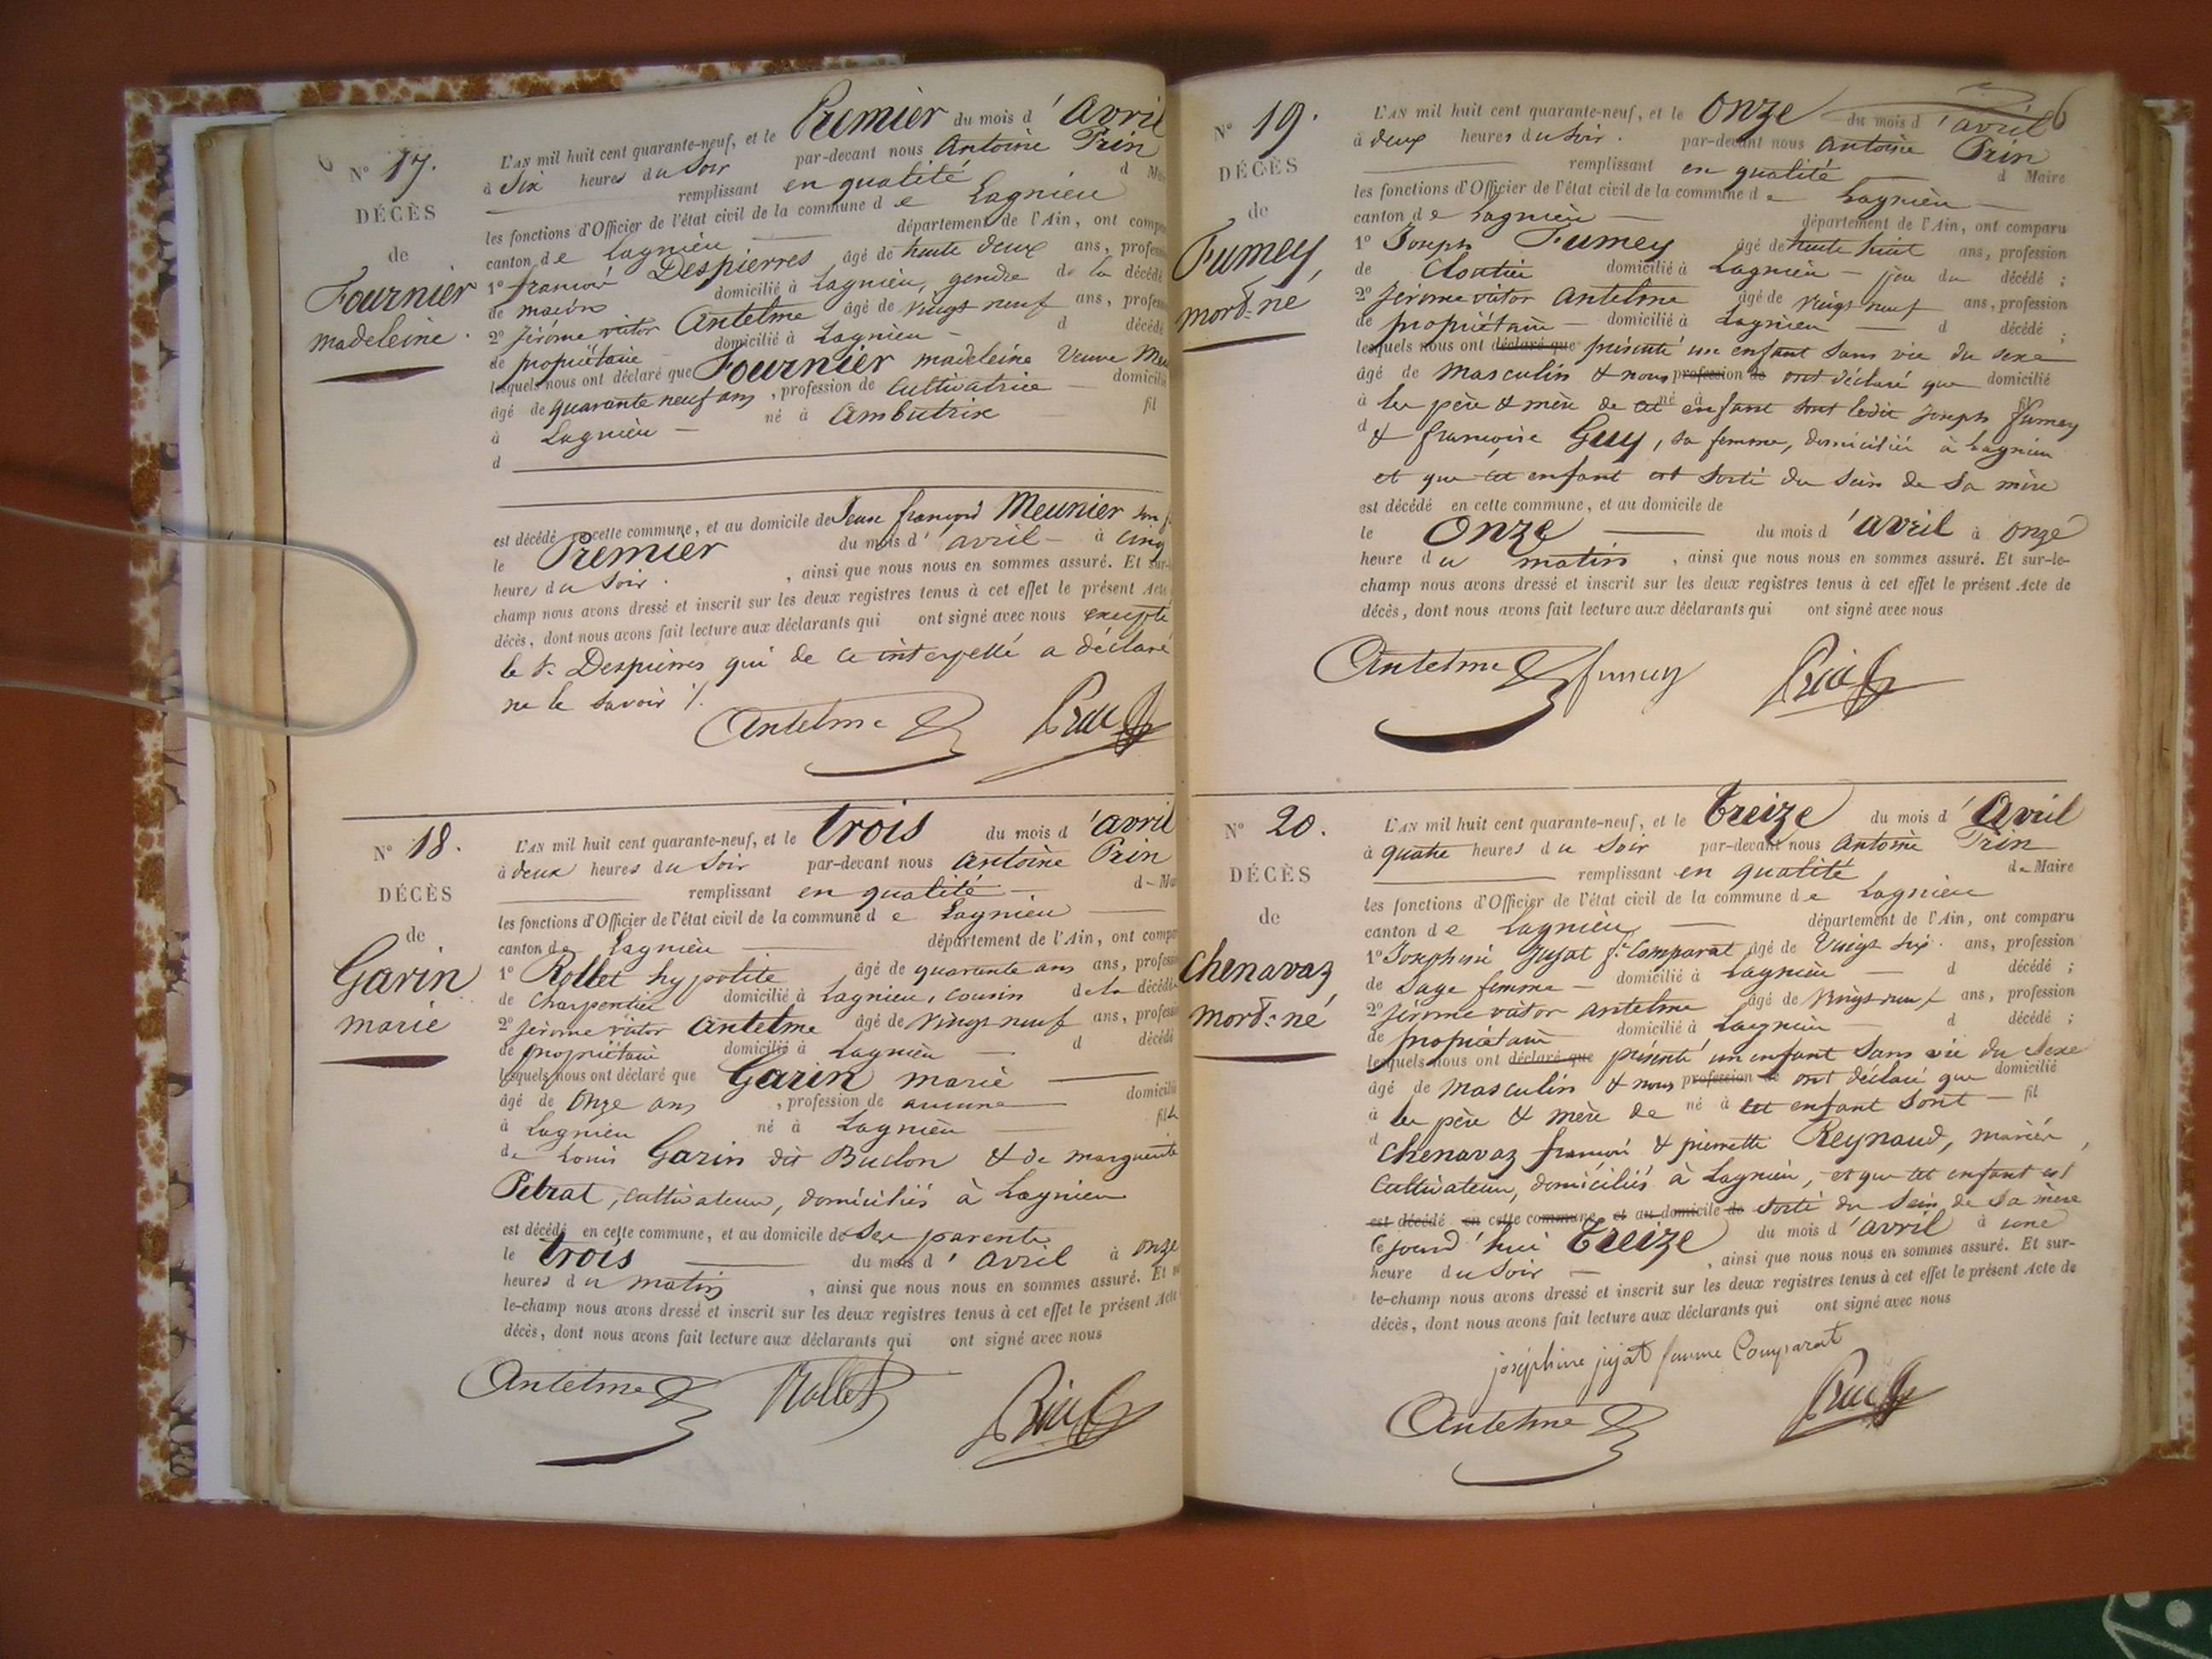 N° 17.
DÉCÈS
de
Fournier
madeleine.
L'AN mil huit cent quarante-neuf, et le Premier du mois d'Avril
à Six heures du Soir par-devant nous Antoine Prin
remplissant en qualité d
les fonctions d'Officier de l'état civil de la commune de Lagnieu
canton de Lagnieu département de l'Ain, ont
1° françois Despierres âgé de trente deux ans,
de maçon domicilié à Lagnieu, gendre de la décédé
2° Jérôme victor Antelme âgé de vingt neuf ans,
de propriétaire domicilié à Lagnieu d décédé
lesquels nous ont déclaré que Fournier madeleine Veuve
âgé de quarante neuf ans, profession de Cultivatrice
à Lagnieu né à Ambutrix fil
d
est décédé en cette commune, et au domicile de Jean françois Meunier son
le Premier du mois d'avril à cinq
heures du Soir. , ainsi que nous nous en sommes assuré. Et
champ nous avons dressé et inscrit sur les deux registres tenus à cet effet le présent Acte
décès, dont nous avons fait lecture aux déclarants qui ont signé avec nous excepté
le Sr. Despierres qui de ce interpellé a déclaré
ne le savoir ./.
Antelme Prin
N° 18.
DÉCÈS
de
Garin
marie
L'AN mil huit cent quarante-neuf, et le trois du mois d'avril
à deux heures du Soir par-devant nous Antoine Prin
remplissant en qualité de
les fonctions d'Officier de l'état civil de la commune de Lagnieu
canton de Lagnieu département de l'Ain, ont
1° Rollet hypolite âgé de quarante ans ans,
de Charpentier domicilié à Lagnieu, cousin de la décédée
2° Jérôme victor Antelme âgé de vingt neuf ans,
de propriétaire domicilié à Lagnieu d décédé
lesquels nous ont déclaré que Garin marie
âgé de Onze ans , profession de aucune domicilié
à Lagnieu né à Lagnieu fille
de Louis Garin dit Buclon & de marguerite
Petrat, cultivateurs, domiciliés à Lagnieu
est décédé en cette commune, et au domicile de Ses parents
le trois du mois d'avril à onze
heures du matin , ainsi que nous nous en sommes assuré. Et
le-champ nous avons dressé et inscrit sur les deux registres tenus à cet effet le présent Acte
décès, dont nous avons fait lecture aux déclarants qui ont signé avec nous
Antelme Rollet Prin
N° 19.
DÉCÈS
de
Fumey,
mort-né
6
L'AN mil huit cent quarante-neuf, et le Onze du mois d'avril
à deux heures du Soir. par-devant nous Antoine Prin
remplissant en qualité d Maire
les fonctions d'Officier de l'état civil de la commune de Lagnieu
canton de Lagnieu département de l'Ain, ont comparu
1° Joseph Fumey âgé de trente huit ans, profession
de Cloutier domicilié à Lagnieu du décédé ;
2° Jérôme victor Antelme âgé de vingt neuf ans, profession
de propriétaire domicilié à Lagnieu d décédé ;
lesquels nous ont déclaré que présenté un enfant Sans vie du sexe
âgé de masculin & nous profession de ont déclaré que domicilié
à les père & mère de né à cet enfant sont ledit Joseph fumey fil
d & françoise Guy, sa femme, domiciliés à Lagnieu
et que cet enfant est sorti du sein de sa mère
est décédé en cette commune, et au domicile de
le Onze du mois d'avril à onze
heure du matin , ainsi que nous nous en sommes assuré. Et sur-le-
champ nous avons dressé et inscrit sur les deux registres tenus à cet effet le présent Acte de
décès, dont nous avons fait lecture aux déclarants qui ont signé avec nous
Antelme fumey Prin
N° 20.
DÉCÈS
de
Chenavaz
mort-né
L'AN mil huit cent quarante-neuf, et le treize du mois d'Avril
à quatre heures du Soir par-devant nous Antoine Prin
remplissant en qualité de Maire
les fonctions d'Officier de l'état civil de la commune de Lagnieu
canton de Lagnieu département de l'Ain, ont comparu
1° Joséphine Jujat fe Comparat âgé de Vingt six. ans, profession
de Sage femme domicilié à Lagnieu d décédé ;
2° Jérôme victor Antelme âgé de vingt neuf ans, profession
de propriétaire domicilié à Lagnieu d décédé ;
lesquels nous ont déclaré que présenté un enfant Sans vie du Sexe
âgé de masculin & nous profession de ont déclaré que domicilié
à les père & mère de né à cet enfant Sont fil
d Chenavaz françois & pierrette Reynaud, mariés,
Cultivateurs, domiciliés à Lagnieu, et que cet enfant est
est décédé en cette commune, et au domicile de sorti du Sein de Sa mère
le jourd'hui treize du mois d'avril à une
heure du Soir , ainsi que nous nous en sommes assuré. Et sur-
le-champ nous avons dressé et inscrit sur les deux registres tenus à cet effet le présent Acte de
décès, dont nous avons fait lecture aux déclarants qui ont signé avec nous
joséphine jujat femme Comparat
Antelme Prin